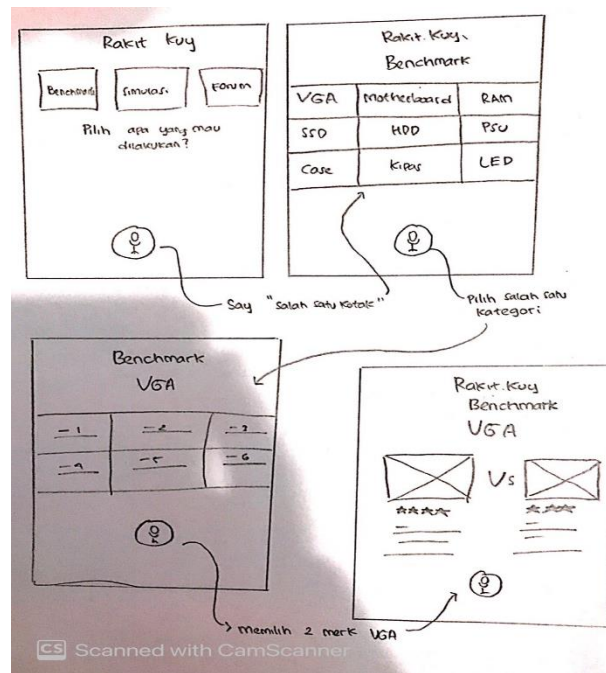 Rakit Kuy
Benchmark Simulasi Forum
Pilih apa yang mau
dilakukan?
Rakit.Kuy.
Benchmark
VGA Motherboard RAM
SSD HDD PSU
Case Kipas LED
Say "salah satu kotak"
Pilih salah satu
kategori
Benchmark
VGA
- 1 - 2 - 3
- 4 - 5 - 6
Rakit.Kuy
Benchmark
VGA
Vs
memilih 2 merk VGA
CS Scanned with CamScanner